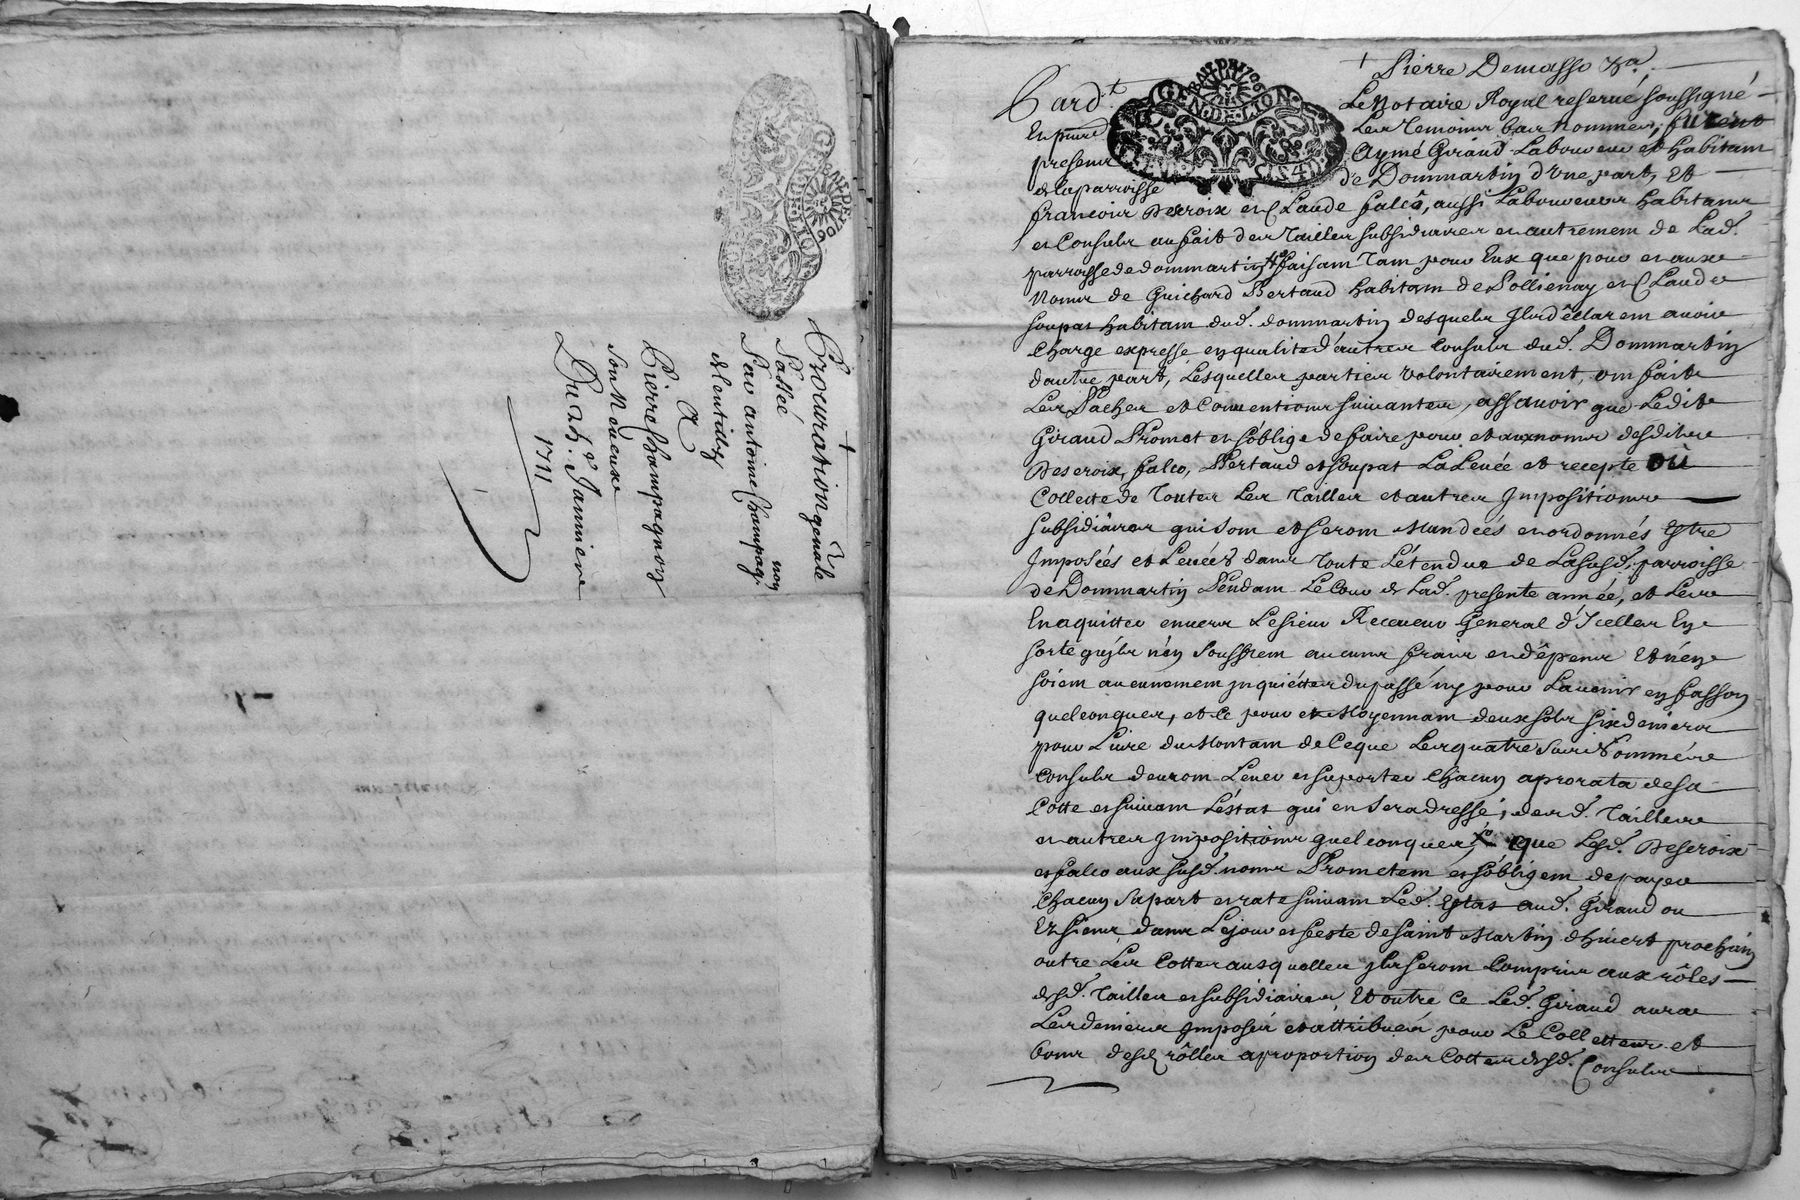 Procuration genâle
Passée
Par antoine Champag-
non
de Lentilly
A
Pierre Champagnon
son Neveux
Du 25.e Janvier
1711
GEN. DE. LION.
+ Pierre Demasso &a.
Pard.t Le Notaire Royal reservé soussigné
En pñce Les Temoins bas nommes, furent
presens Aymé Giraud Laboureur et habitant
de la parroisse de Dommartin d'Une part, Et
francois Descroix et Claude falco, aussi Laboureurs habitans
et Consuls au fait des Tailles subsidiaires et autrement de Lad.
parroisse de dommartin faisant Tant pour Eux que pour et aux
Noms de Guichard Bertaud habitant de Pollienay et Claude
soupat habitant dud. dommartin desquels Ils déclarent avoir
Charge expresse en qualité d'autres Consuls dud. Dommartin
dautre part, Lesquelles parties volontairement, ont fait
Les Paches et Conventions suivantes, assavoir que Ledit
Giraud Promet et soblige de faire pour et aux noms desdits
Descroix, falco, Bertaud et soupat La Levée et recepte OU
Collecte de Toutes Les Tailles et autres Impositions
subsidiaires qui sont et seront Mandées et ordonnés Estre
Imposées et Levées dans Toute L'étendue de La susd. parroisse
de Dommartin Pendant Le Cour de Lad. presente année, et Les
En aquitter envers Le sieur Receveur General d'Icelles En
sorte qu'ils n'en souffrent aucuns frais et dépens Et n'en
soient aucunement Inquiéttes du passé ny pour L'avenir en fasson
quelconques, et Ce pour et Moyennant deux sols six deniers
pour Livre du Montant de Ce que Les quatre sus Nommés
Consuls devront Lever et suporter Chacun aprorata de sa
Cotte et suivant L'éstat qui en sera dressé, desd. Tailles
et autres Impositions quelconques, que Lesd. Descroix
et falco aux susd. noms Prometent et s'obligent de payer
Chacun sa part et rate suivant Led. Estat aud. Giraud ou
Es siens dans Le jour et feste de saint Martin d'hivert prochain
outre Les Cottes ausquelles Ils seront Compris aux rôles
desd. Tailles et subsidiaires Et outre Ce Led. Giraud aura
Les deniers Imposés et attribués pour Le Collecteur et
bons desd. rôlles aproportion des Cottes desd. Consuls